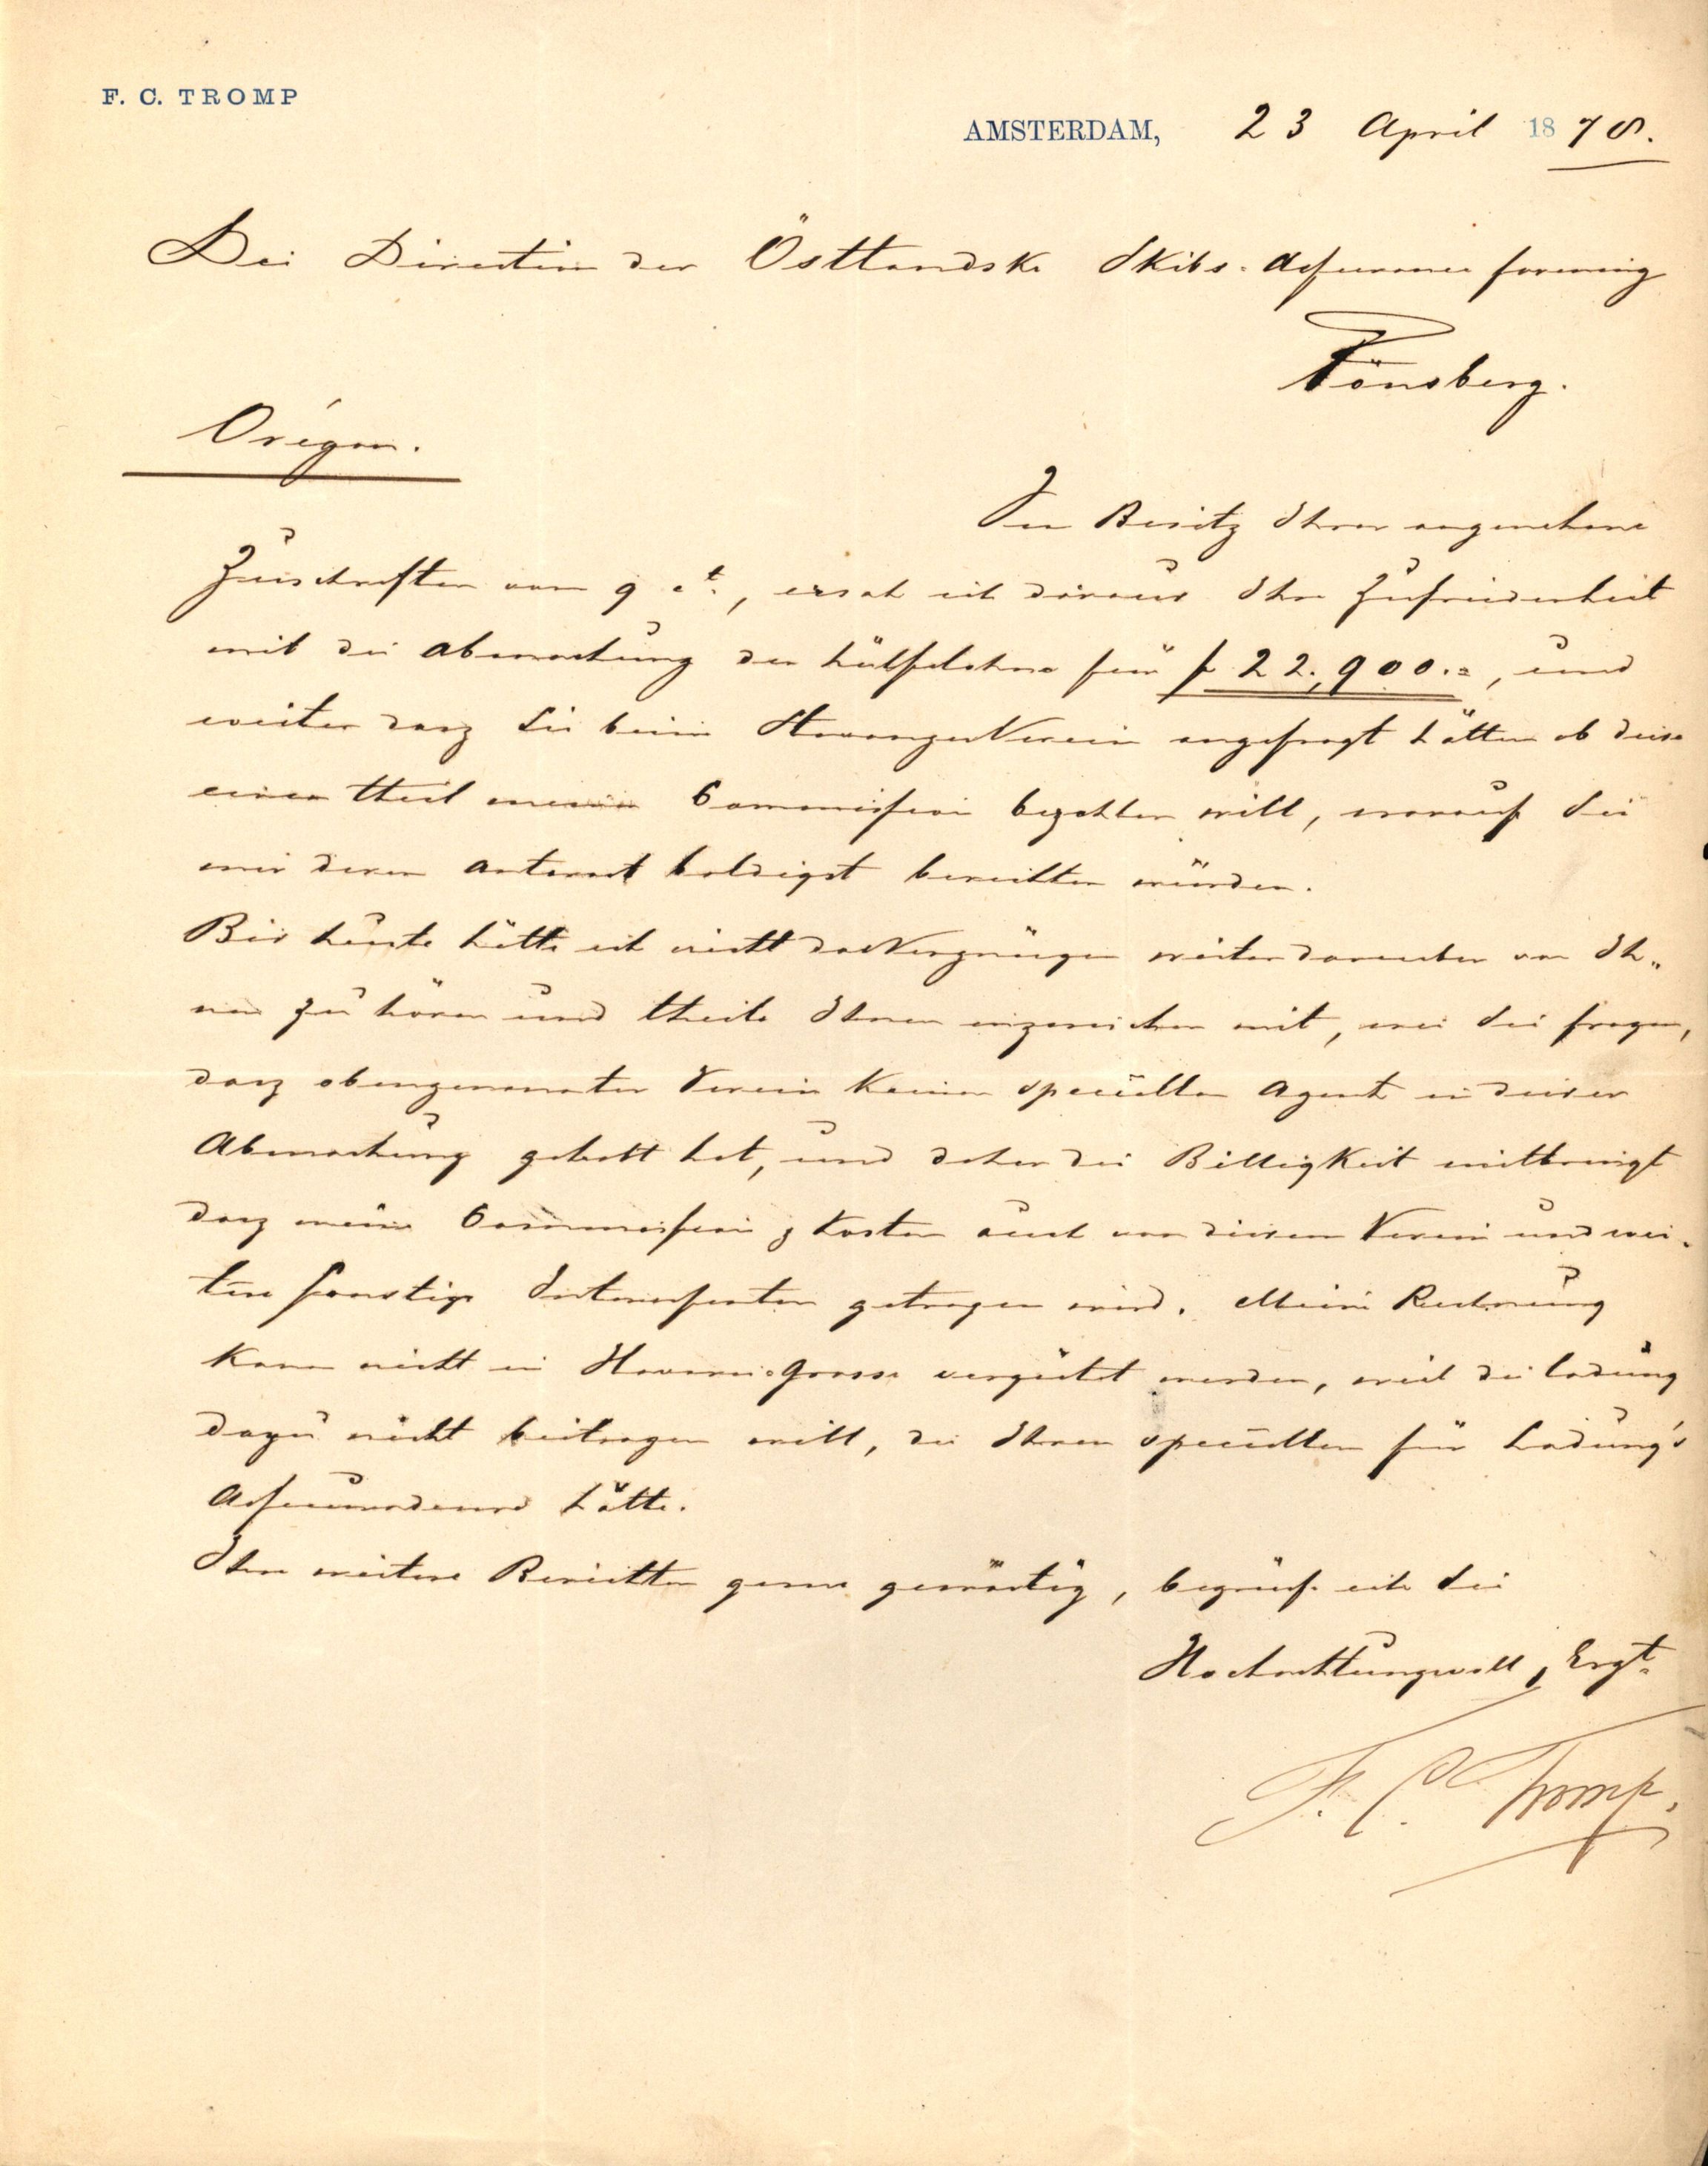 F. C. TROMP
AMSTERDAM, 23 April 1878.
Die Direction der Östlandske Skibs-Assurance forening
Tönsberg.
Origon.
Im Besitz Ihrer angenehme
Zuschriften vom 9 ct., ersah ich daraus Ihre Zufriedenheit
mit die Abmachung der Hülfslohne für f 22,900.=, und
weiter dasz Sie beim Verein angefragt hätten ob diese
einen theil meine Commission bezahlen will, worauf Sie
mir deren Antwort baldigst berichten würden.
Bis heute hätte ich nicht das Vergnügen weiter darueber von Ih„
nen zu hören und theile Ihnen inzwischen mit, wie Sie fragen,
dasz obengenannter Verein keinen speciellen Agent in dieser
Abmachung gehabt hat, und daher die Billigkeit mitbringt
dasz meine Commission & Kosten auch von diesem Verein und wei„
tere sonstige Interessenten getragen wird. Meine Rechnung
kann nicht in Havarie-Grosse vergütet werden, weil die Ladung
dazu nicht beitragen will, die Ihren speciellen für Ladung's
Assuradeurs hätte.
Ihre weitere Berichten gerne gewärtig, begrüsse ich Sie
Hochachtungsvoll, Ergt.
F. C. Tromp.